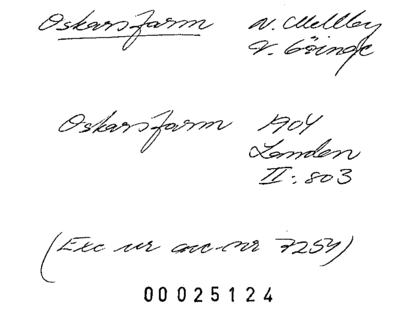 Oskarsfarm N. Mellby
V. Göinge
Oskarsfarm 1904
Landen
II: 803
(Exc ur acc-nr 7254)
00025124